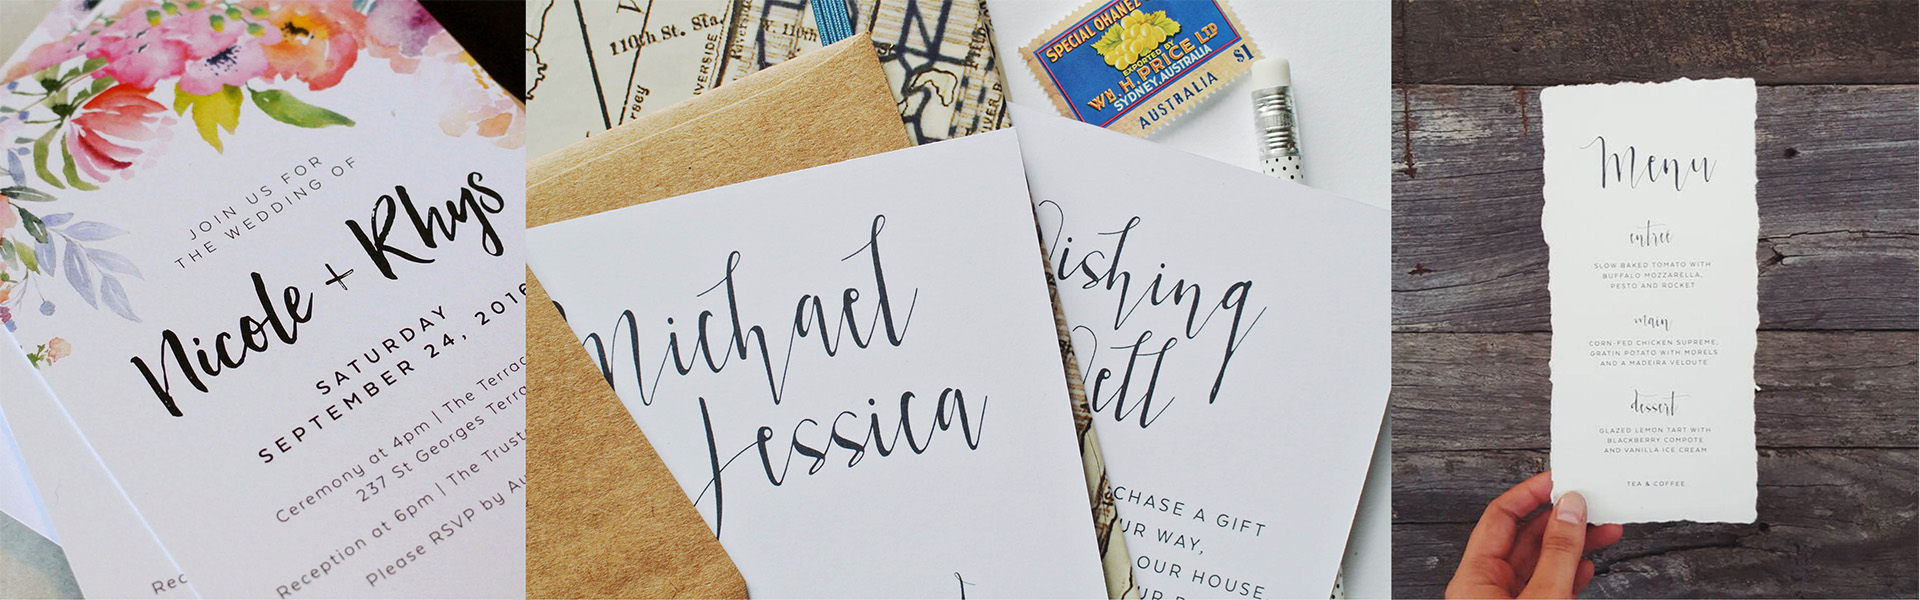 JOIN US FOR
THE WEDDING OF
Nicole + Rhys
SATURDAY
SEPTEMBER 24, 2016
Ceremony at 4pm | The
237 St Georges
Reception at 6pm | The
Please RSVP by
110th St. Sta.
SPECIAL OHANEZ
EXPORTED BY
WM. H. PRICE LTD
SYDNEY, AUSTRALIA
$1
AUSTRALIA
Michael
Jessica
ishing
ell
CHASE A GIFT
UR WAY,
OUR HOUSE
Menu
entrée
SLOW BAKED TOMATO WITH
BUFFALO MOZZARELLA,
PESTO AND ROCKET
main
CORN-FED CHICKEN SUPREME,
GRATIN POTATO WITH MORELS
AND A MADEIRA VELOUTE
dessert
GLAZED LEMON TART WITH
BLACKBERRY COMPOTE
AND VANILLA ICE CREAM
TEA & COFFEE